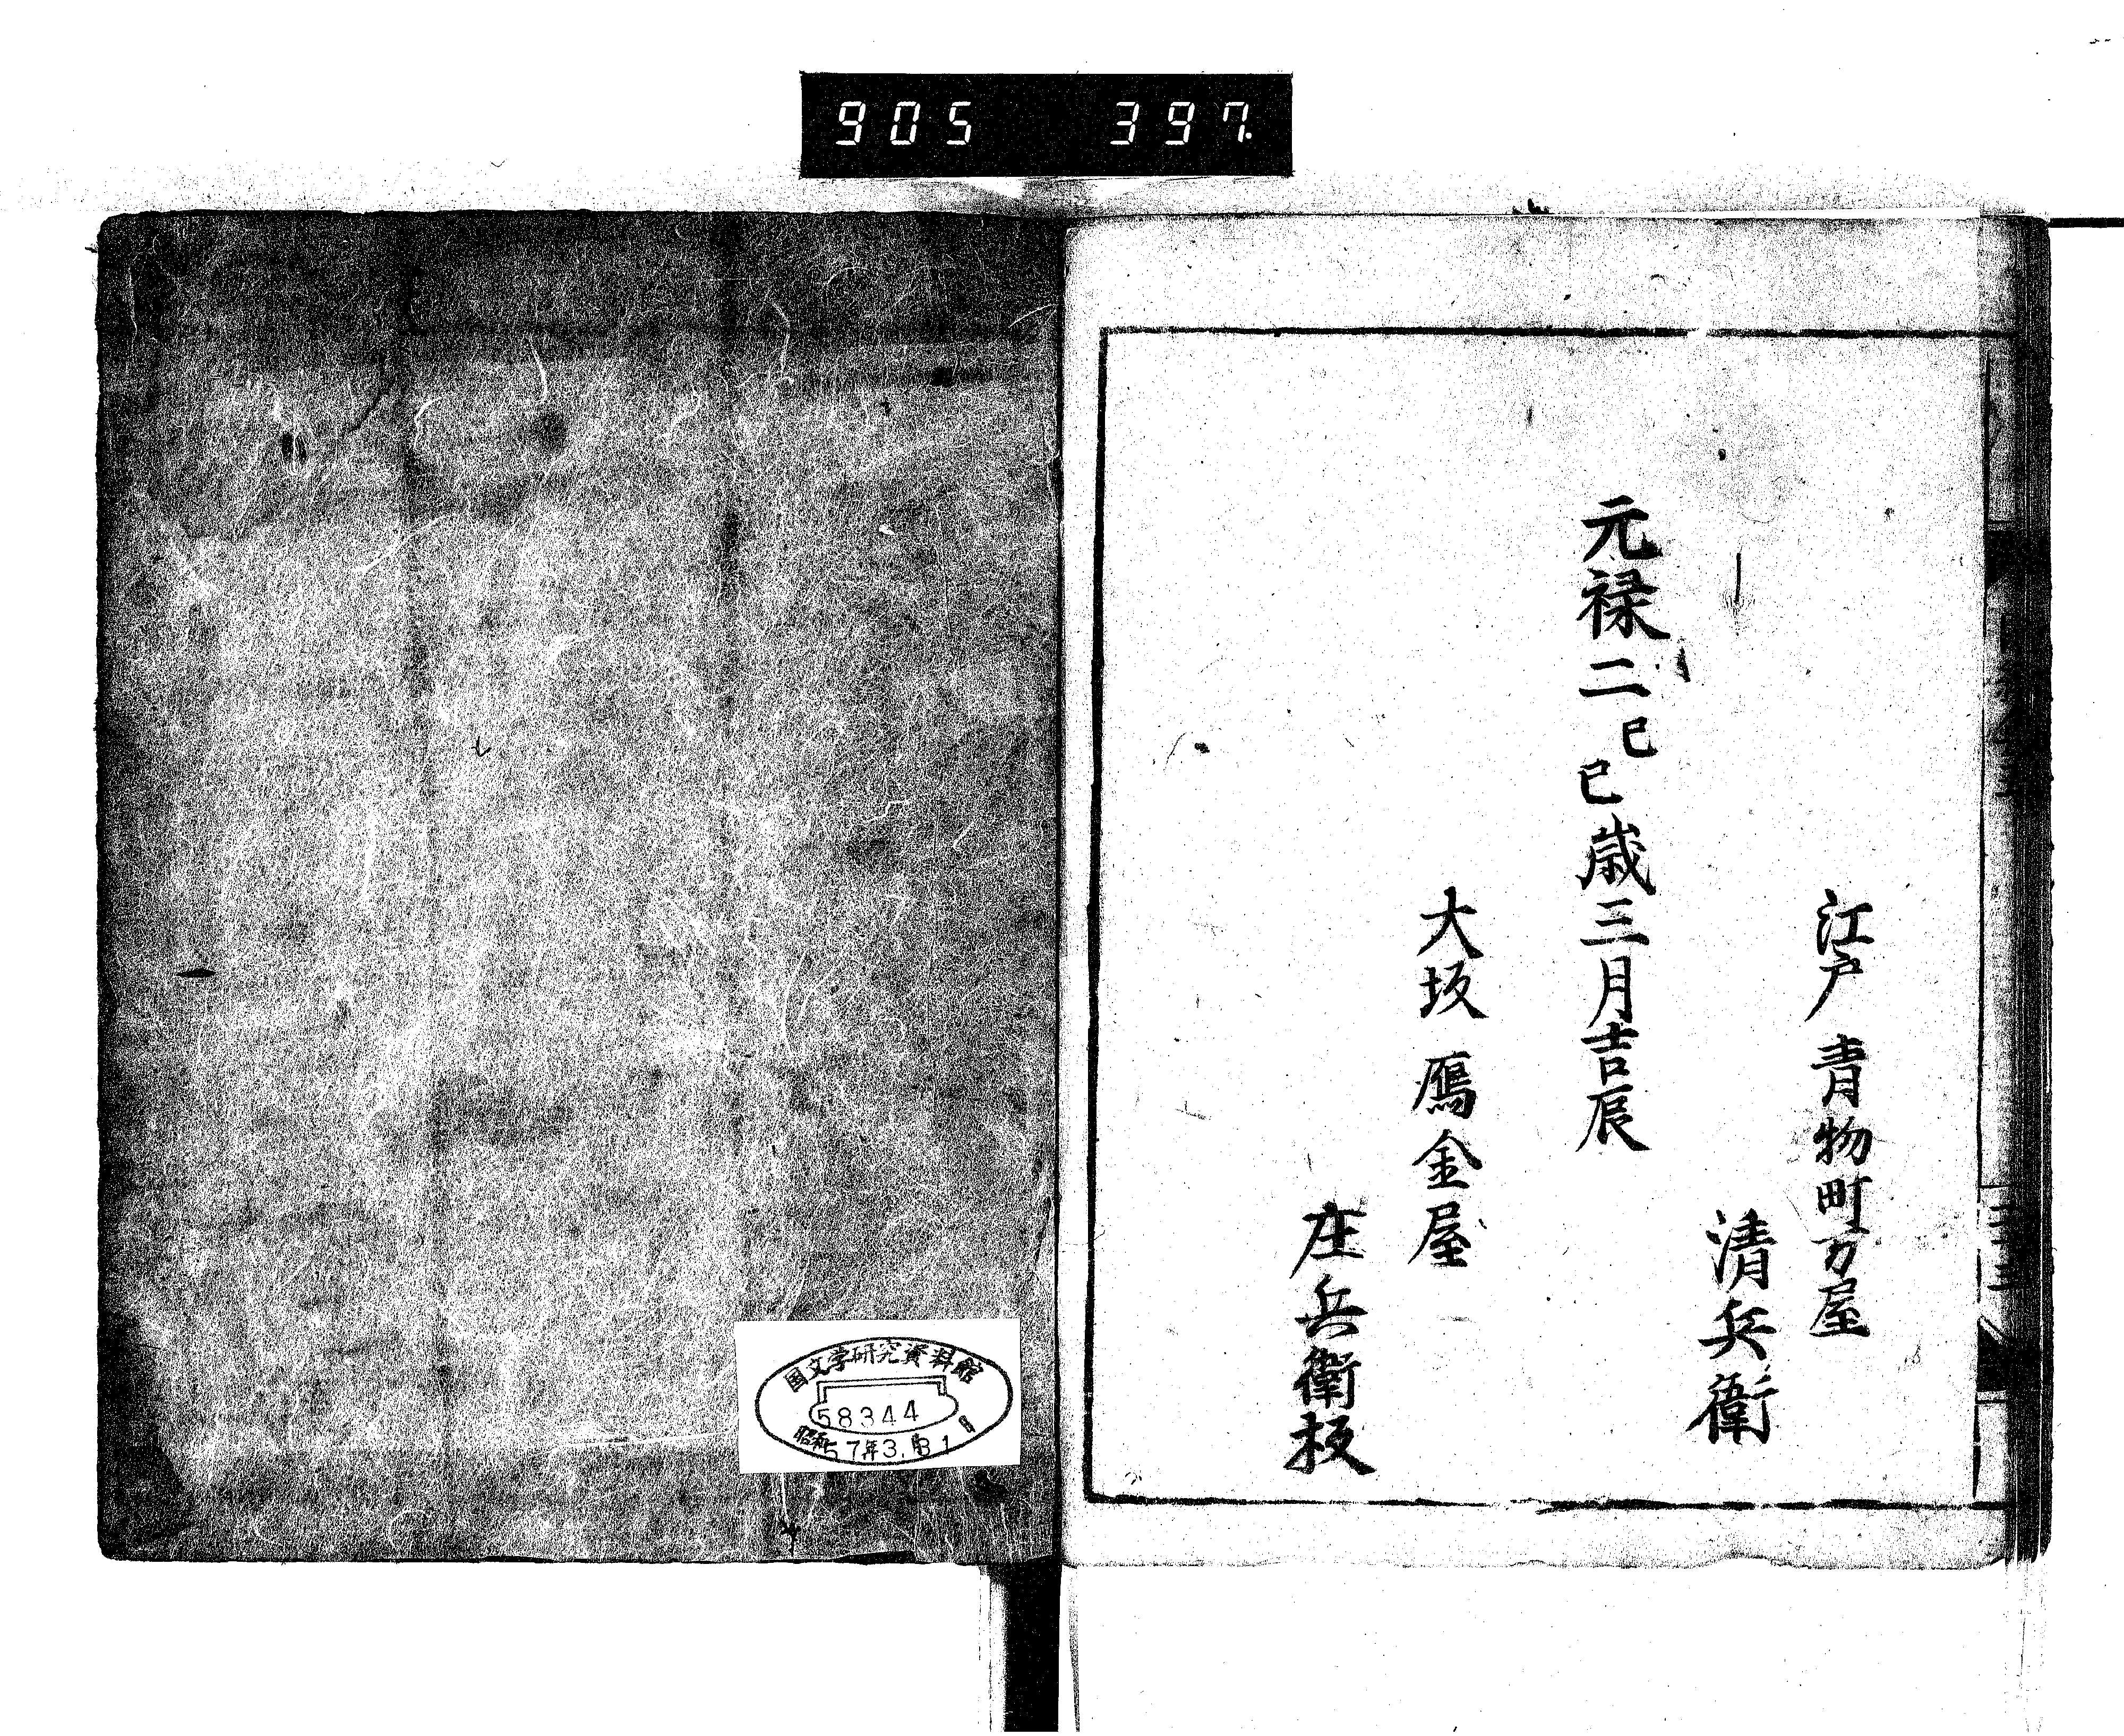 905 397.
江戸 青物町万屋
清兵衛
元禄二己巳歳三月吉辰
大坂 鴈金屋
庄兵衛板
国文学研究資料館
58344
昭和57年3月31日